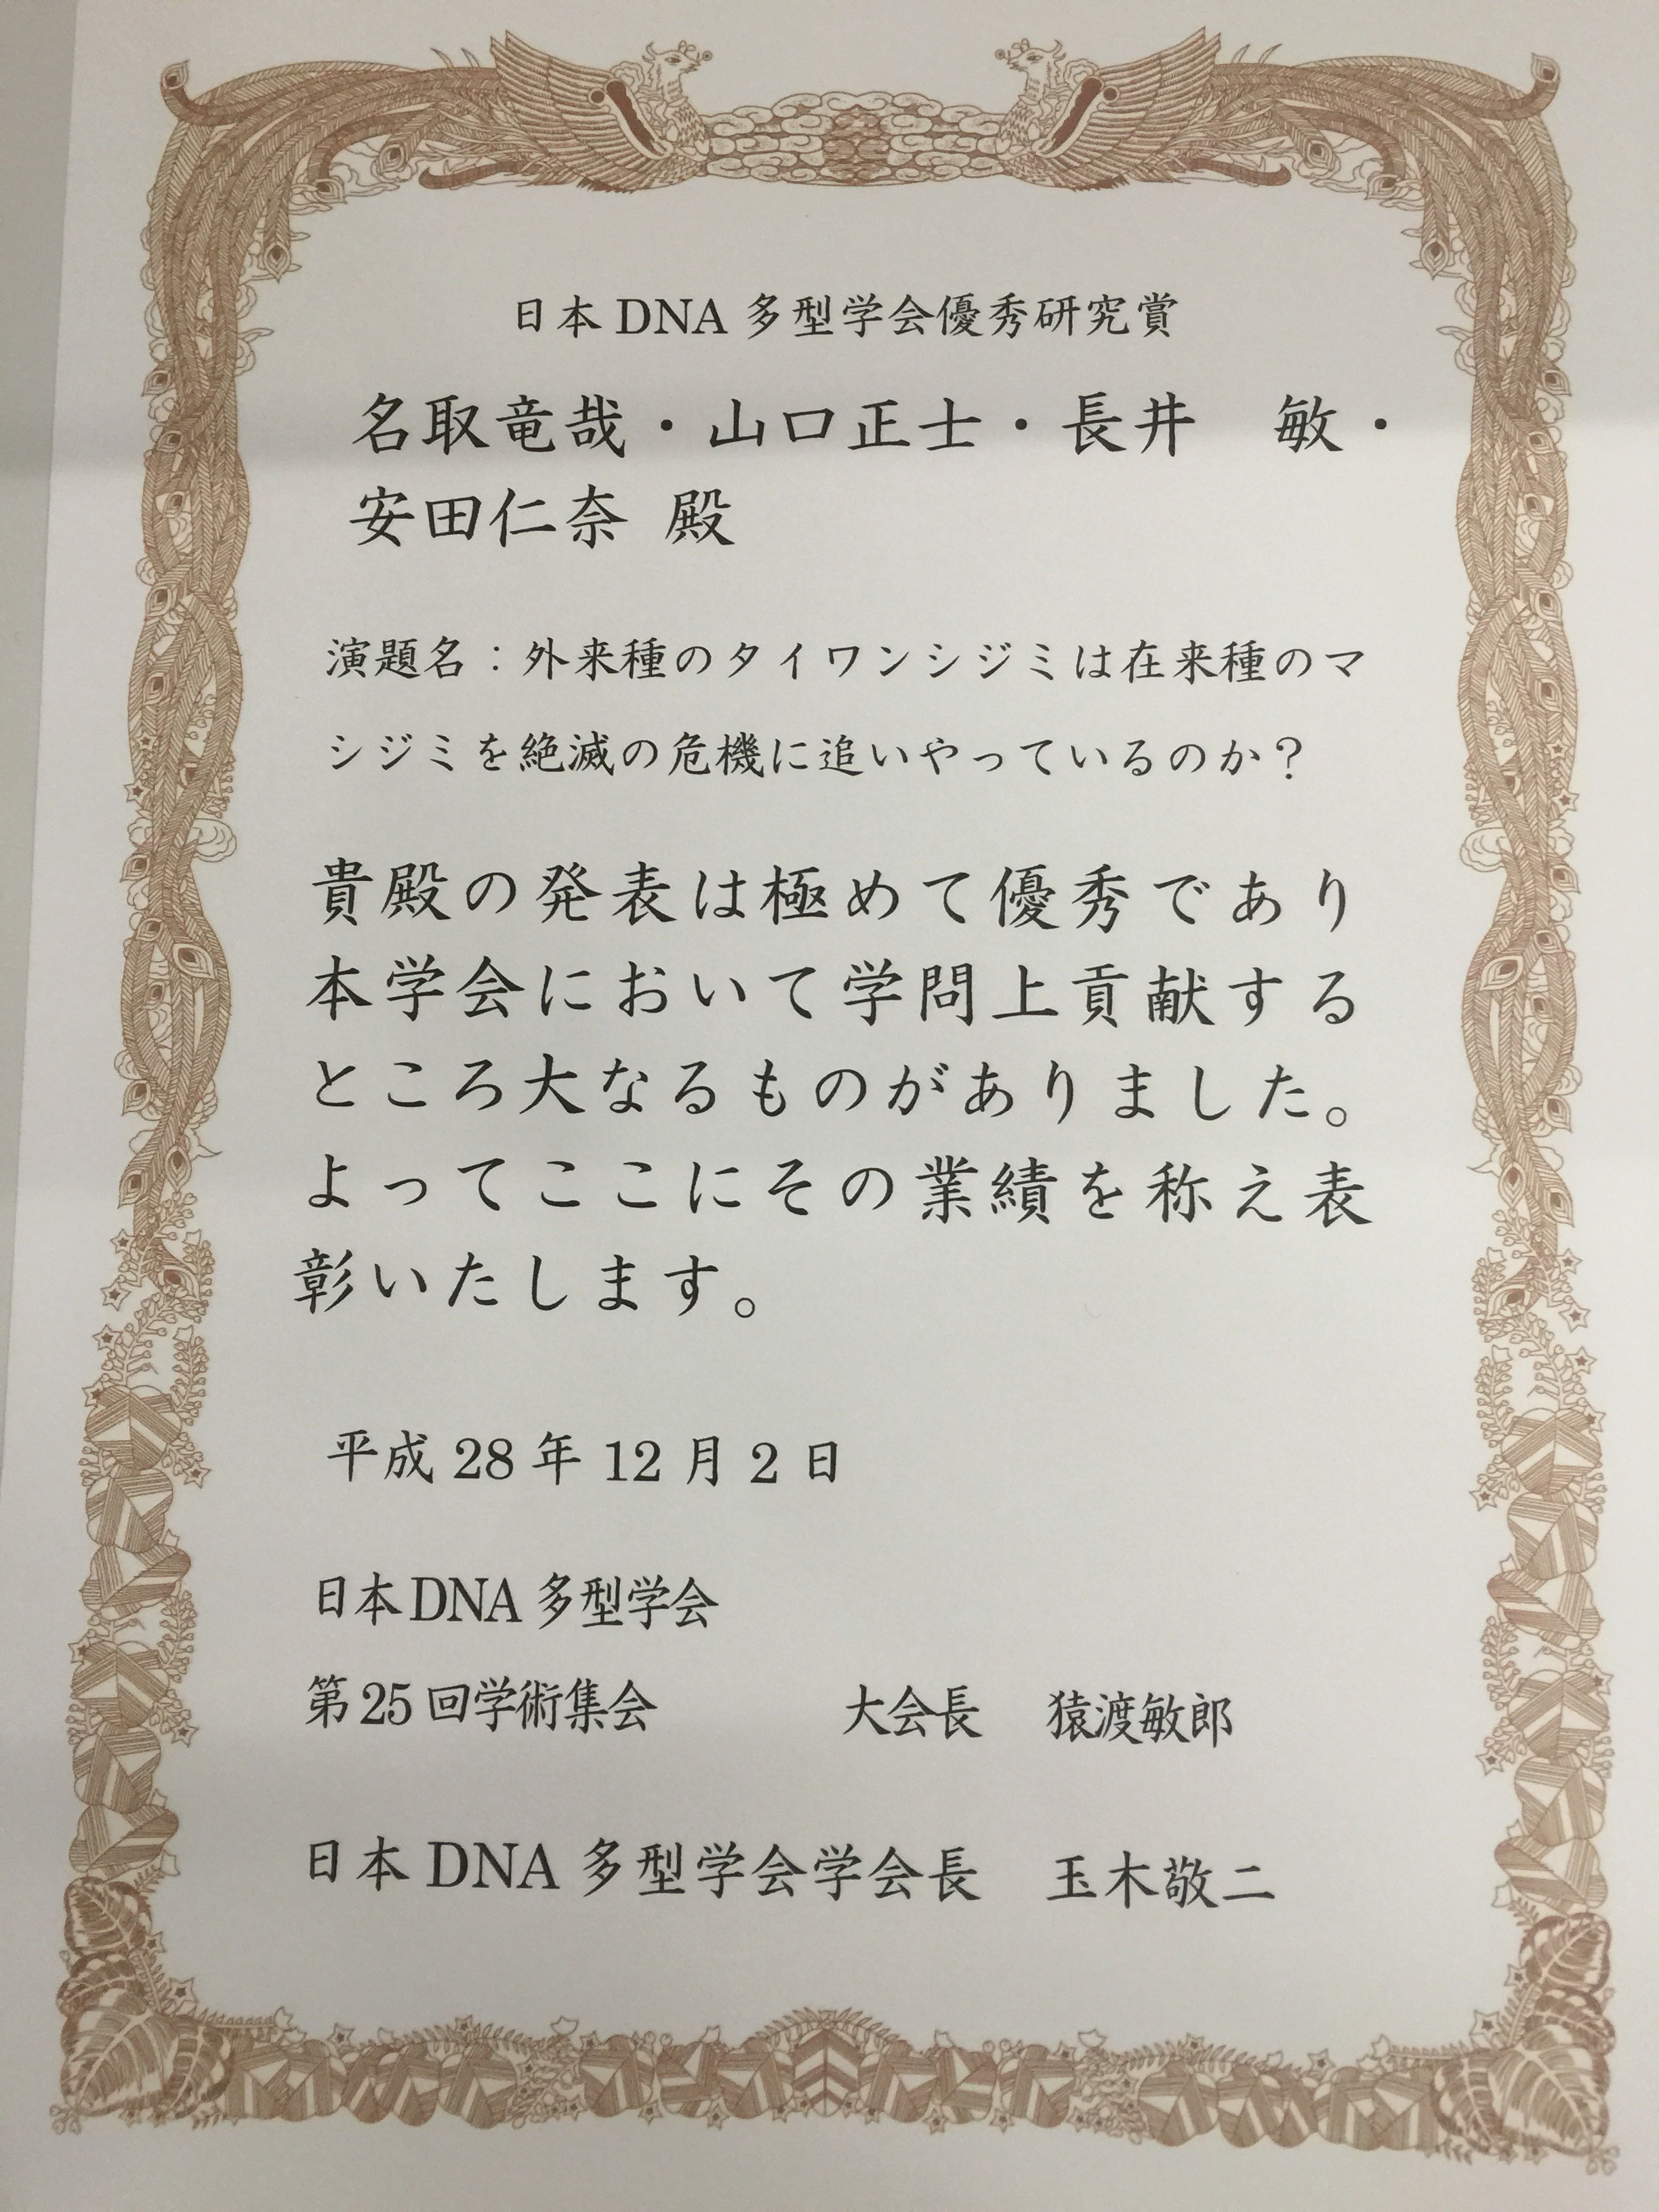 日本 DNA 多型学会優秀研究賞
名取竜哉・山口正士・長井　敏・
安田仁奈 殿
演題名：外来種のタイワンシジミは在来種のマ
シジミを絶滅の危機に追いやっているのか？
貴殿の発表は極めて優秀であり
本学会において学問上貢献する
ところ大なるものがありました。
よってここにその業績を称え表
彰いたします。
平成 28 年 12 月 2 日
日本DNA 多型学会
第 25 回学術集会　　　大会長　猿渡敏郎
日本 DNA 多型学会学会長　玉木敬二